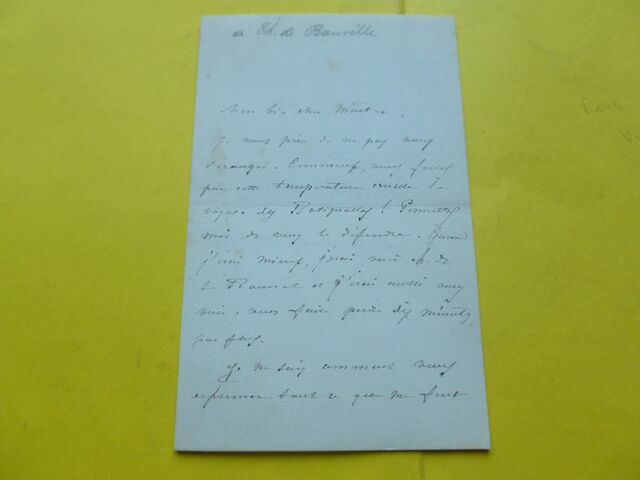 à Th. de Banville
Mon bien cher Maître,
je vous prie de ne pas vous
déranger. Comment, vous feriez
par cette température cruelle le
voyage des Batignolles ! Permettez
moi de vous le défendre. Quand
j'irai mieux, j'irai voir M. de
la Rounat et j'irai aussi vous
voir, vous faire perdre dix minutes,
pas plus.
Je ne sais comment vous
exprimer tout ce que me font